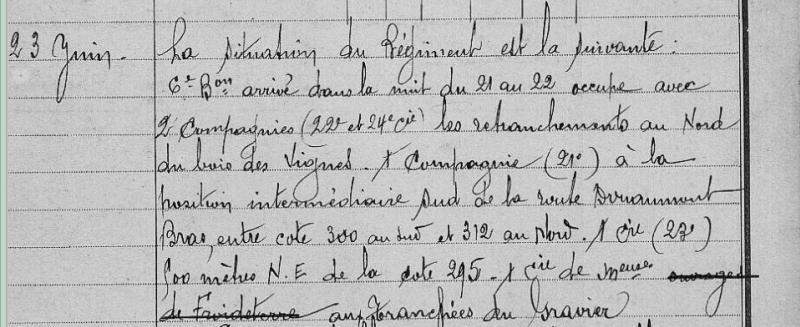 23 Juin. La situation du Régiment est la suivante :
6e Bon arrivé dans la nuit du 21 au 22 occupe avec
2 Compagnies (22e et 24e Cie) les retranchements au Nord
du bois des Vignes. 1 Compagnie (21e) à la
position intermédiaire sud de la route Douaumont
Bras, entre cote 300 au sud et 312 au Nord. 1 Cie (23e)
500 mètres N.E de la cote 295. 1 Cie de Meuses ouvrage
de Froideterre aux tranchées du Gravier